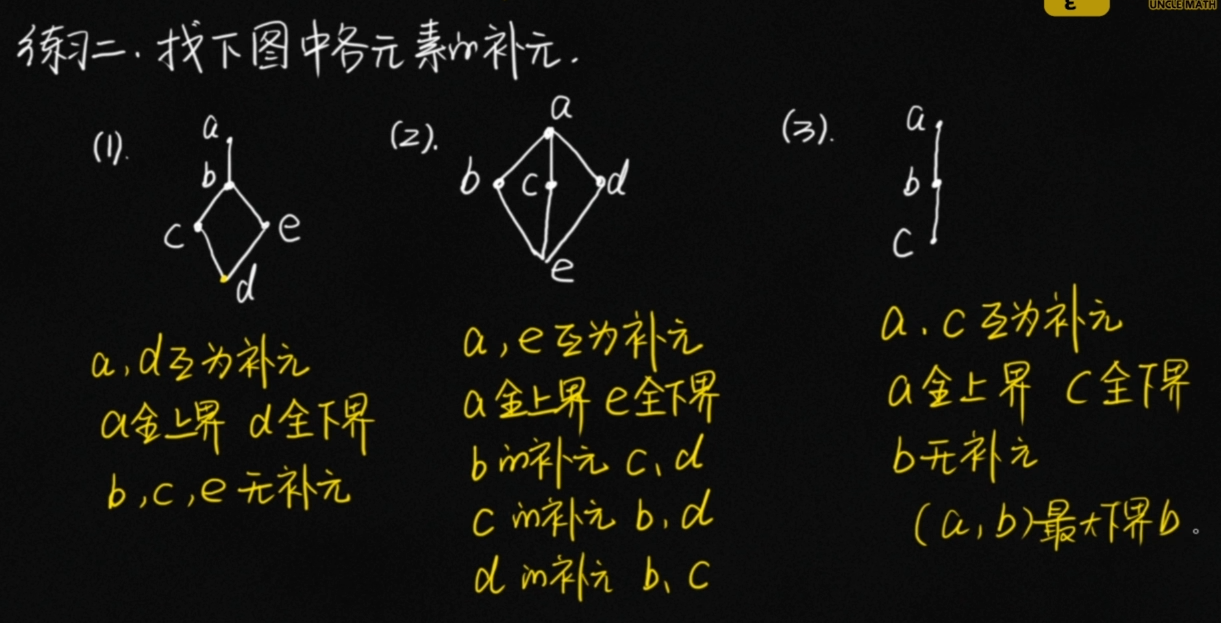 ε
UNCLE MATH
练习二.找下图中各元素的补元.
(1).
a
b
c
e
d
(2).
a
b
c
d
e
(3).
a
b
c
a,d互为补元
a全上界 d全下界
b,c,e无补元
a,e互为补元
a全上界 e全下界
b的补元 c、d
c的补元 b、d
d的补元 b、c
a、c互为补元
a全上界 c全下界
b无补元
(a,b)最大下界b。